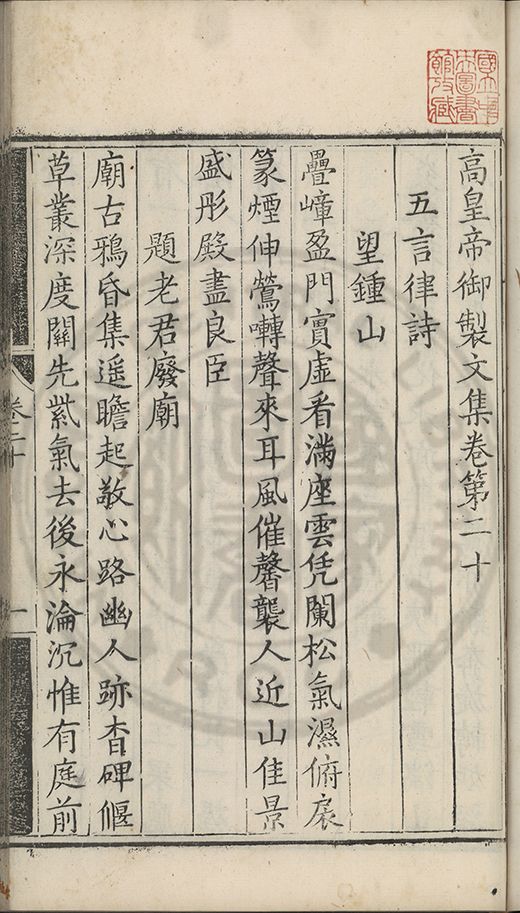 高皇帝御製文集卷第二十
五言律詩
望鍾山
疊嶂盈門實虛看滿座雲凭闌松氣濕俯扆
篆煙伸鶯囀聲來耳風催馨襲人近山佳景
盛彤殿盡良臣
題老君廢廟
廟古鴉昏集遥瞻起敬心路幽人跡杳碑偃
草叢深度關先紫氣去後永淪沉惟有庭前
卷二十
一